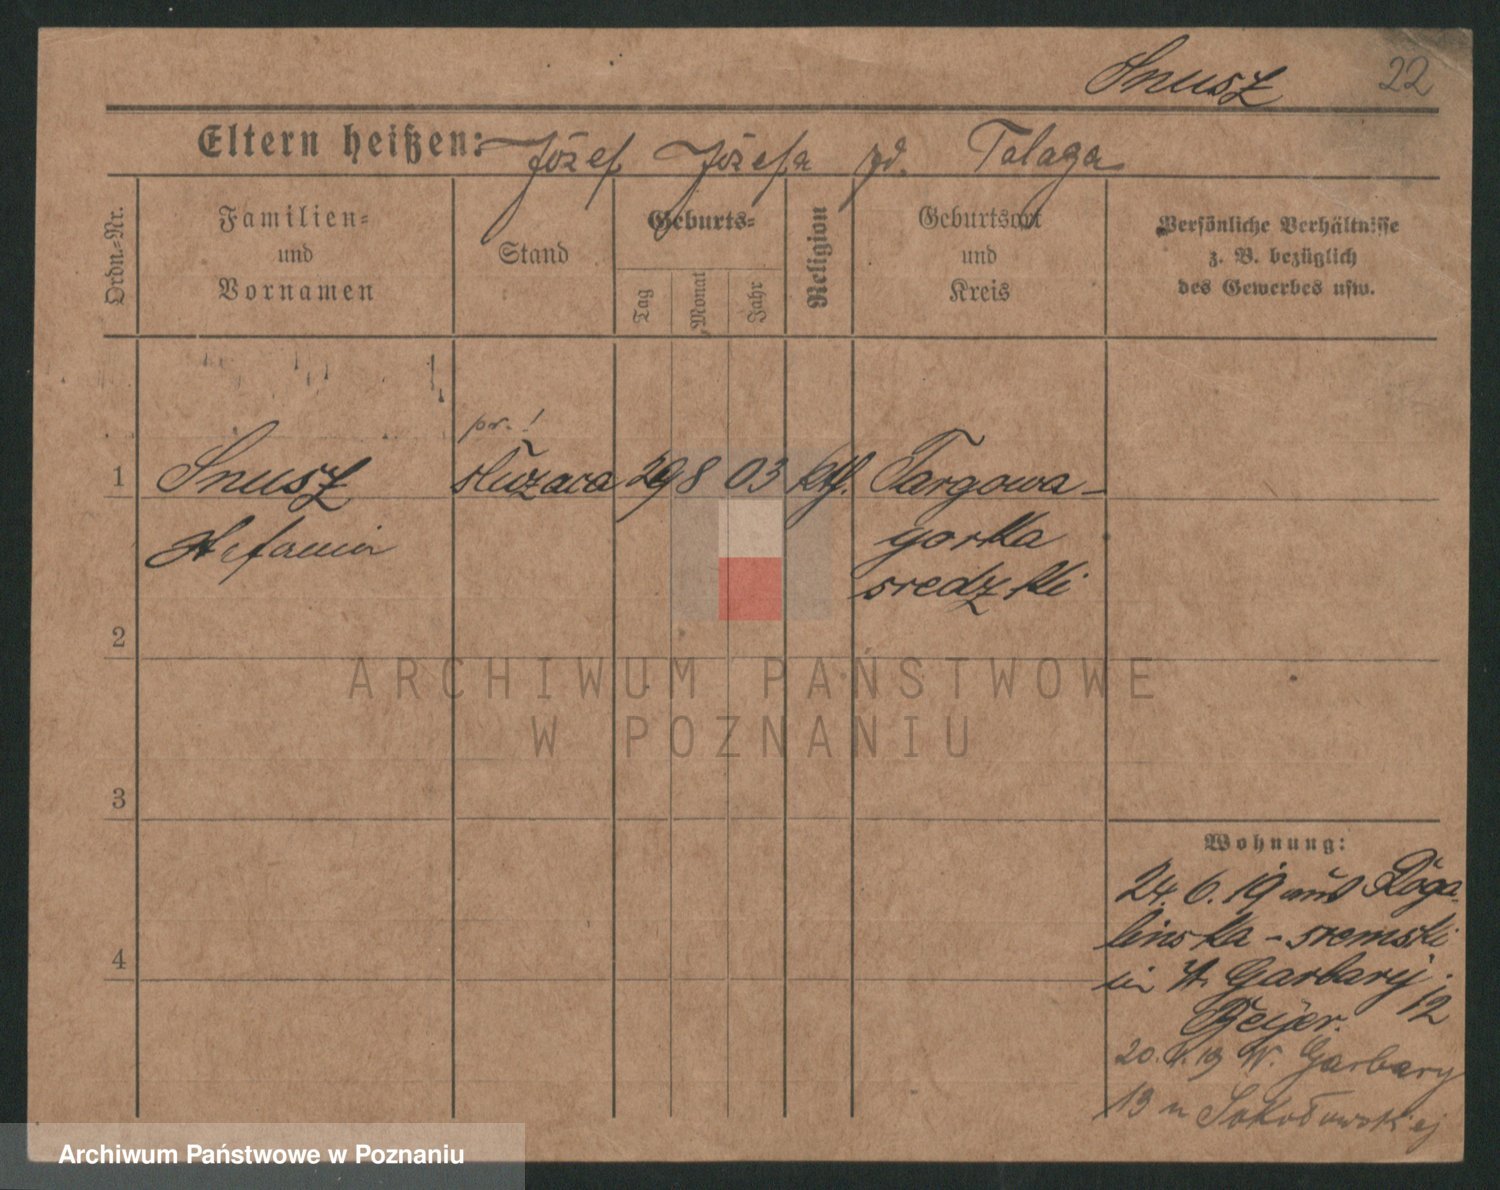 Snusz 22
Eltern heißen: Józef Józefa zd. Talaga
Ordn.-Nr.
Familien-
und
Vornamen
Stand
Geburts-
Tag
Monat
Jahr
Religion
Geburtsort
und
Kreis
Persönliche Verhältnisse
z. B. bezüglich
des Gewerbes usw.
pr. !
1 Snusz służąca 29 8 03 ktl. Targowa-
Stefania gorka
sredzki
2
ARCHIWUM PAŃSTWOWE
W POZNANIU
3
Wohnung:
24. 6. 19 aus Roga-
linska - sremski
4
in W. Garbary
Beijer. 12
W. Garbary
19 u Sokołowskiej
Archiwum Państwowe w Poznaniu